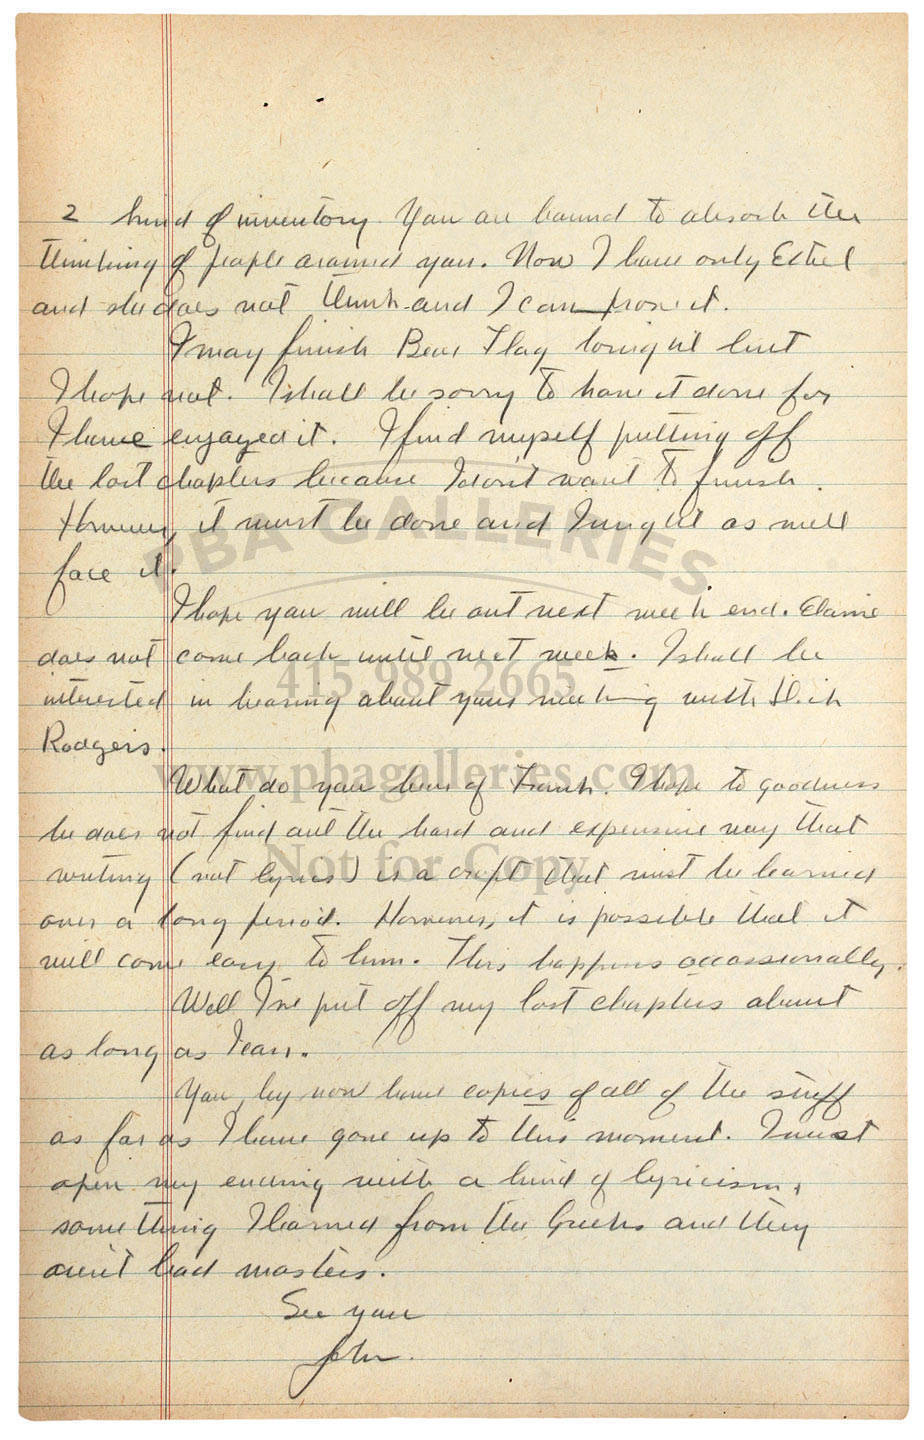 2 kind of inventory. You are bound to absorb the
thinking of people around you. Now I have only Ethel
and she does not think and I can prove it.
I may finish Bear Flag tonight but
I hope not. I shall be sorry to have it done for
I have enjoyed it. I find myself putting off
the last chapters because I don't want to finish.
However, it must be done and I might as well
face it.
I hope you will be out next week end. Elaine
does not come back until next week. I shall be
interested in hearing about your meeting with Dick
Rodgers.
What do you hear of Frank. I hope to goodness
he does not find out the hard and expensive way that
writing (not lyrics) is a craft that must be learned
over a long period. However, it is possible that it
will come easy to him. This happens occassionally.
Well I've put off my last chapters about
as long as I can.
You by now have copies of all of the stuff
as far as I have gone up to this moment. I must
open my ending with a kind of lyricism,
something I learned from the Greeks and they
aren't bad masters.
See you
John.
PBA GALLERIES
415.989.2665
www.pbagalleries.com
Not for Copy